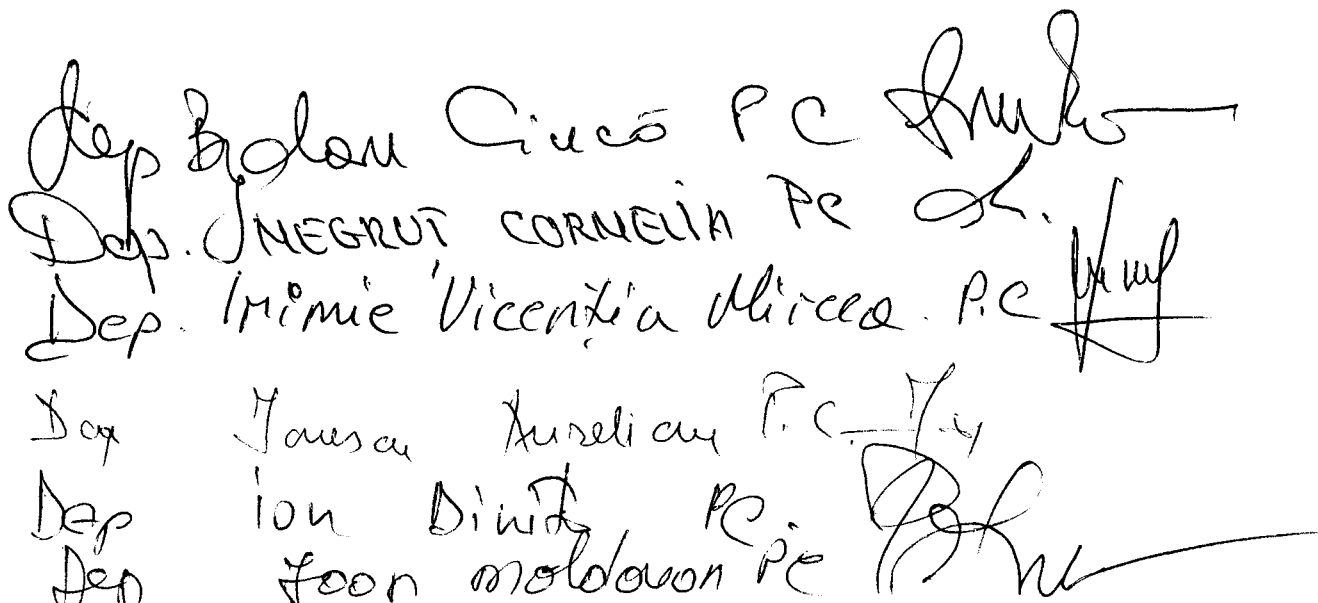 Dep Bogdan Ciucă P C
Dep. NEGRUȚ CORNELIA PC
Dep. Irimie Vicenția Mircea. P.C
Dep Aurelian P.C.
Dep ion Diniță PC.
Dep Ioan moldovan PC